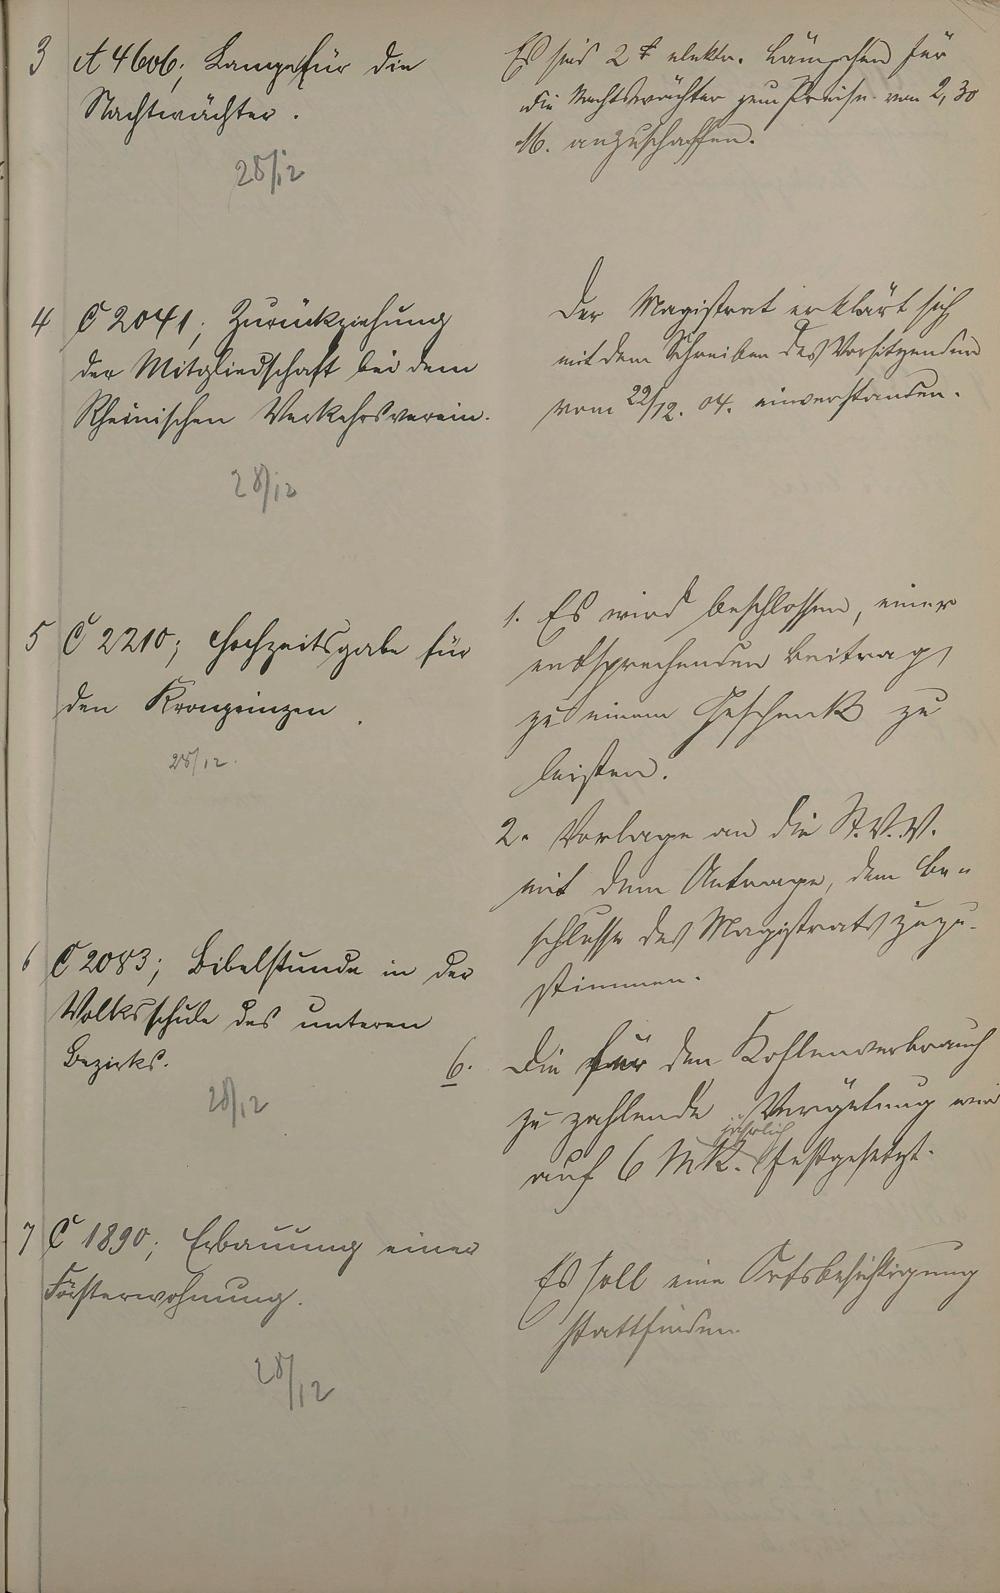 3 A 4606; Lampe für die
Nachtwächter.
28/12
Es sind 2 elektr. Lämpchen für
die Nachtwächter zum Preise von 2,30
M. anzuschaffen.
4 C 2041; Zurückziehung
der Mitgliedschaft bei dem
Rheinischen Verkehrsverein.
28/12
Der Magistrat erklärt sich
mit dem Schreiben des Vorsitzenden
vom 22/12. 04. einverstanden.
5 C 2210; Hochzeitsgabe für
den Kronprinzen.
28/12.
1. Es wird beschlossen, einen
entsprechenden Beitrag
zu einem Geschenk zu
leisten.
2. Vorlage an die St.V.V.
mit dem Antrage, dem Be-
schlusse des Magistrats zuzu-
stimmen.
6 C 2083; Bibelstunde in der
Volksschule des unteren
Bezirks.
28/12
6. Die für den Kohlenverbrauch
zu zahlende Vergütung wird
jährlich
auf 6 Mk. festgesetzt.
7 C 1890; Erbauung einer
Försterwohnung.
28/12
Es soll eine Ortsbesichtigung
stattfinden.